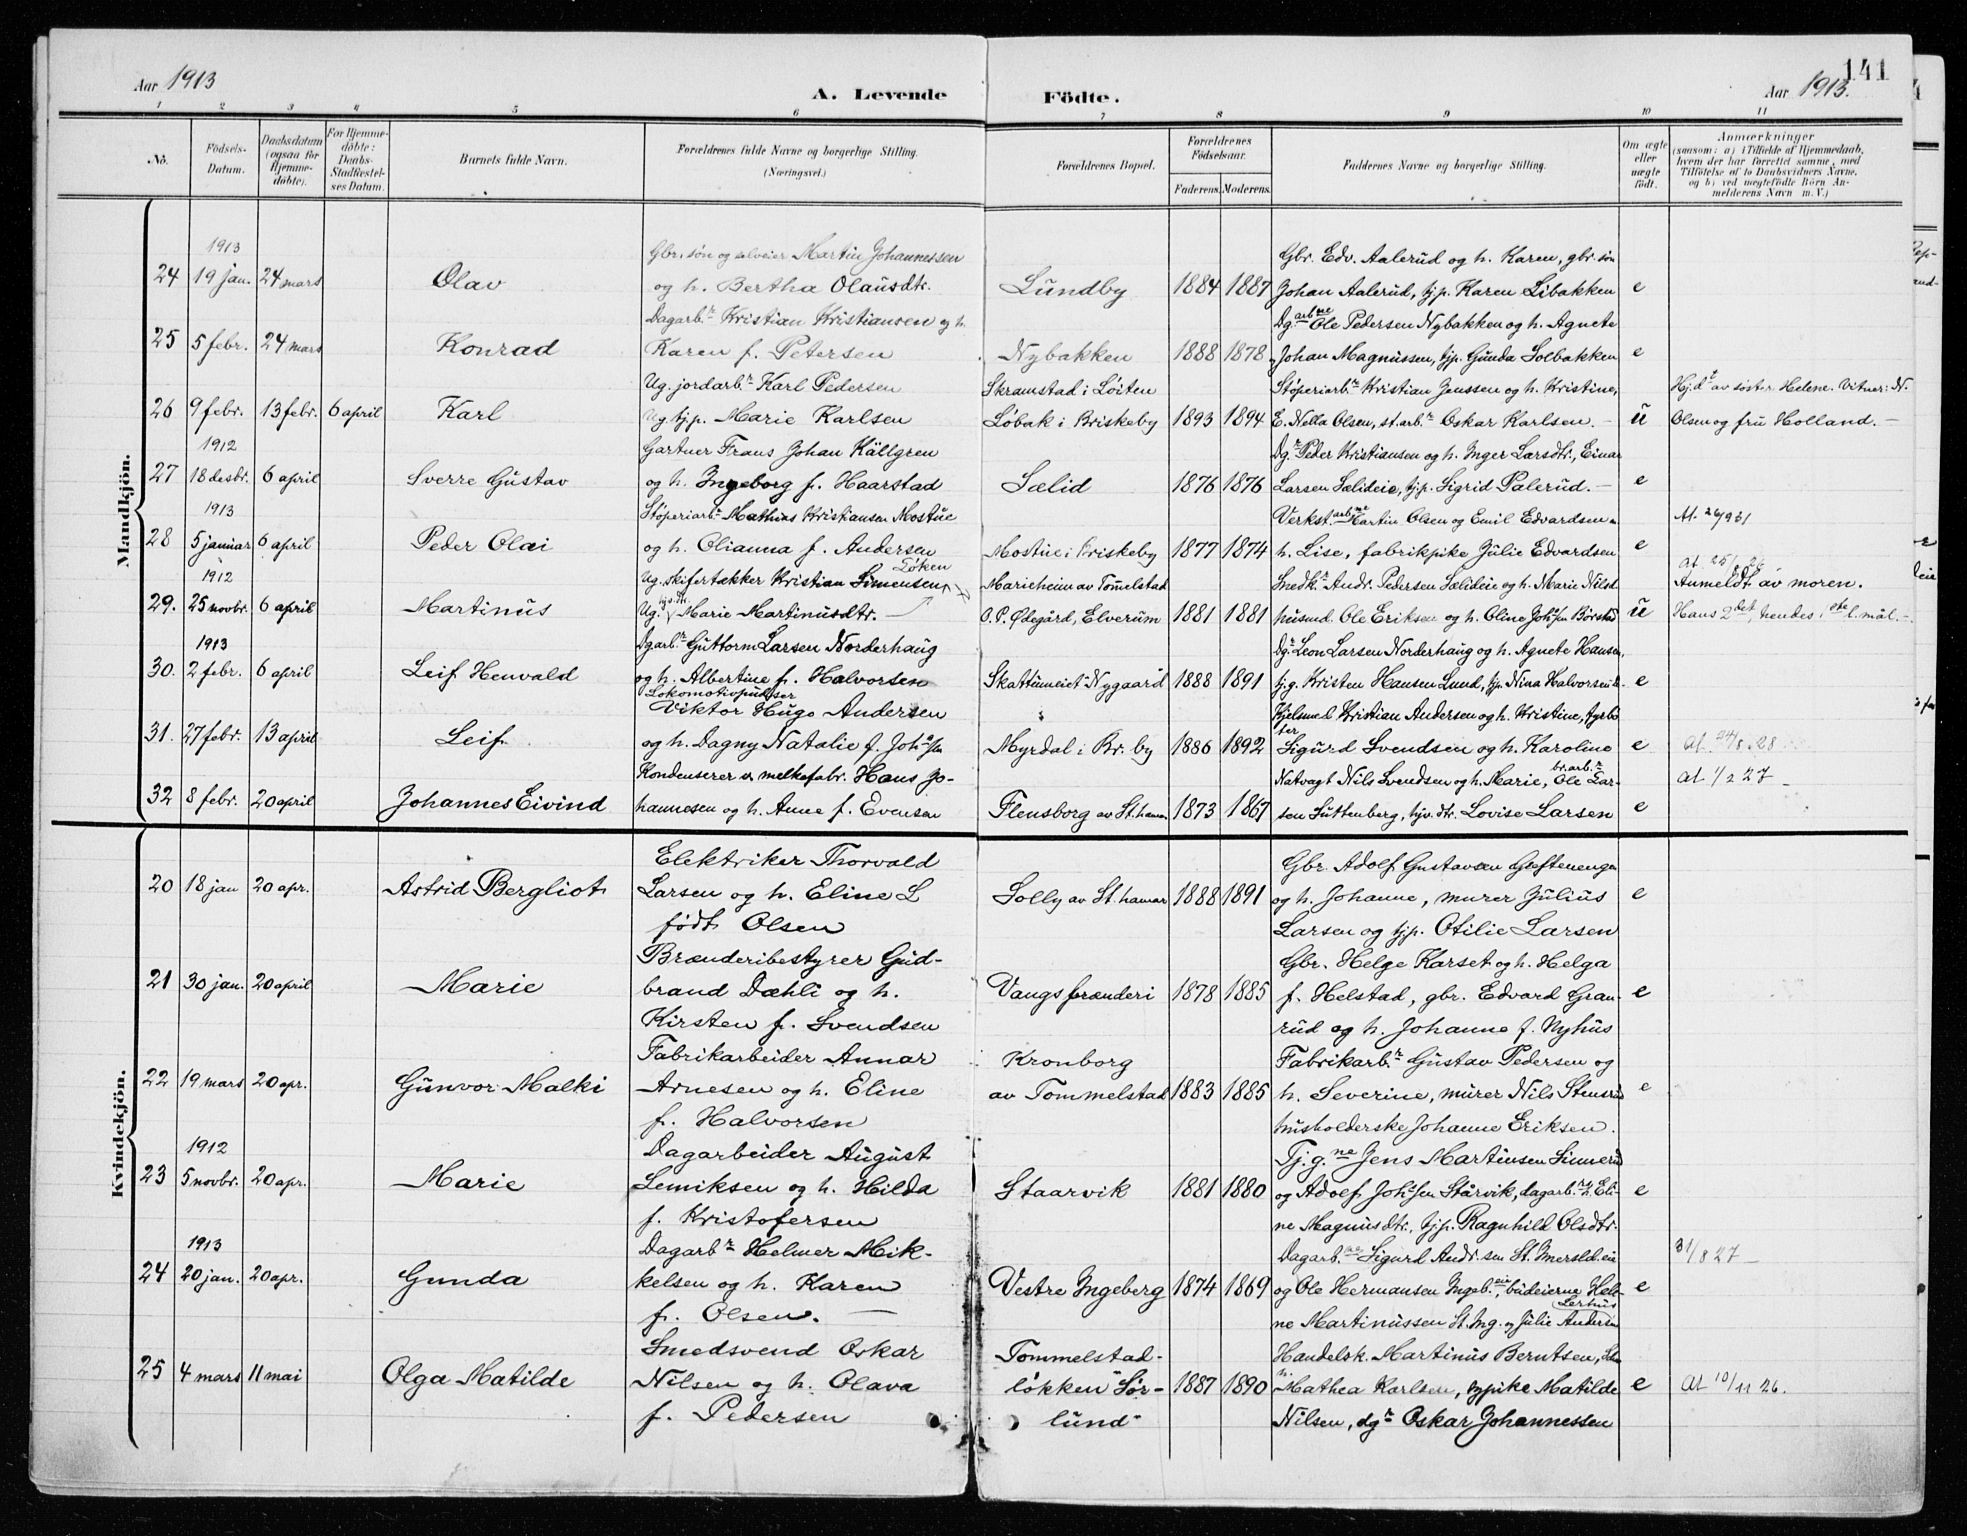 141
Aar 1913 A. Levende Födte. Aar 1913.
1 2 3 4 5 6 7 8 9 10 11
No. Födsels-Datum. Daabsdatum (ogsaa for Hjemme-döbte). For Hjemme-döbte: Daabs-Stadfæstel-ses Datum. Barnets fulde Navn. Forældrenes fulde Navne og borgerlige Stilling. (Næringsvei.) Forældrenes Bopæl. Forældrenes Födselsaar. Faderens. Moderens. Faddernes Navne og borgerlige Stilling. Om ægte eller uægte födt. Anmærkninger (saasom: a) i Tilfælde af Hjemmedaab, hvem der har forrettet samme, med Tilföielse af to Daabsvidners Navne, og b) ved uægtefödte Börn An-melderens Navn m. V.)
Mandkjön.
1913 Gbr. søn og selveier Martin Johannessen Gbr. Edv. Aalerud og h. Karen, gbr. søn
24 19 jan. 24 mars Olav og h. Bertha Olausdtr. Lundby 1884 1887 Johan Aalerud, tj.p. Karen Libakken e
Dagarb.r Kristian Kristiansen og h. Dg.arbne Ole Pedersen Nybakken og h. Agnete
25 5 febr. 24 mars Konrad Karen f. Petersen Nybakken 1888 1878 Johan Magnussen, tjp. Gunda Solbakken e
Ug. jordarb.r Karl Pedersen Skramstad i Løiten Støperiarb.r Kristian Jenssen og h. Kristine, Hj.dt av søster Helene. Vitner: N.
26 9 febr. 13 febr. 6 april Karl Ug. tj.p. Marie Karlsen Løbak i Briskeby 1893 1894 E. Nella Olsen, st.arb.r Oskar Karlsen. u Olsen og fru Holland.
1912 Gartner Frans Johan Källgren Dg.r Peder Kristiansen og h. Inger Larsdtr., Einar
27 18 desbr. 6 april Sverre Gustav og h. Ingeborg f. Haarstad Sælid 1876 1876 Larsen Sælideie, tj.p. Sigrid Palerud. e
1913 Støperiarb.r Mathias Kristiansen Mostue Verkst.arbne Martin Olsen og Emil Edvardsen At. 26/9 31
28 5 januar 6 april Peder Olai og h. Olianna f. Andersen Mostue i Briskeby 1877 1874 h. Lise, fabrikpike Julie Edvardsen e
1912 Ug. skifertækker Kristian Simensen Løken Marieheim av Tommelstad Snedk.r Andr. Pedersen Sælideie og h. Marie Nilsd. Anmeldt av moren.
29. 25 novbr. 6 april Martinus Ug. Marie Martinusdtr. O. P. Ødegård, Elverum 1881 1881 husmd. Ole Eriksen og h. Oline u Hans 2det, hendes 1ste l. mål.
1913 Dgarb.r Guttorm Larsen Norderhaug Dg.r Leon Larsen Norderhaug og h. Agnete Hansen,
30. 2 febr. 6 april Leif Henvald og h. Albertine f. Halvorsen Skattumeiet Nygaard 1888 1891 tj.g. Kristen Hansen Lund, tjp. Nina Halvorsen e
Lokomotivpudser Viktor Hugo Andersen Kristian Andersen og h. Kristine,
31. 27 febr. 13 april Leif og h. Dagny Natalie f. Joh.sen Myrdal i Br.by 1886 1892 Sigurd Svendsen og h. Karoline e At. 24/8 28
Kondenserer v. melkefabr. Hans Jo- Natvagt Nils Svendsen og h. Marie, br.arb.r Ole Lar- At 1/2 27
32 8 febr. 20 april Johannes Eivind hannesen og h. Anne f. Evensen Flensborg av St.hamar 1873 1867 sen Luttenberg, hjv. dtr. Lovise Larsen e
Kvindekjön.
Elektriker Thorvald Gbr. Adolf Gustavsen Gjeftenengen
20 18 jan 20 apr. Astrid Bergliot Larsen og h. Eline L Solly av St.hamar 1888 1891 og h. Johanne, murer Julius e
født Olsen Larsen og tjp. Otilie Larsen
Brænderibestyrer Gud- Gbr. Helge Karset og h. Helga
21 30 jan. 20 april Marie brand Dæhli og h. Vangs brænderi 1878 1885 f. Helstad, gbr. Edvard Gran- e
Kirsten f. Svendsen rud og h. Johanne f. Nyhus
Fabrikarbeider Annar Kronborg Fabrikarb.r Gustav Pedersen og
22 19 mars 20 apr. Gunvor Malki Arnesen og h. Eline av Tommelstad 1883 1885 h. Severine, murer Nils Stensrud e
f. Halvorsen husholderske Johanne Eriksen.
1912 Dagarbeider August Tj.g.ne Jens Martinsen Linnerud
23 5 novbr. 20 apr. Marie Lemiksen og h. Hilda Staarvik 1881 1880 og Adolf Joh.sen Stårvik, dagarb.rs h. Eli- e
f. Kristofersen ne Magnusdtr. tjp. Ragnhild Olsdtr.
1913 Dagarb.r Helmer Mik- Dagarb.ne Sigurd Andr.sen 31/8 27
24 20 jan. 20 apr. Gunda kelsen og h. Karen Vestre Ingeberg 1874 1869 og Ole Hermansen Ingeb.eie, budeierne Hele- e
f. Olsen. ne Martinussen St. Ing. og Julie Andersen
Smedsvend Oskar Tommelstad- Handelsk. Martinus Berntsen,
25 4 mars 11 mai Olga Matilde Nilsen og h. Olava løkken "Sør- 1887 1890 Mathea Karlsen, Matilde e At 10/11 26.
f. Pedersen lund" Nilsen, dg.r Oskar Johannessen